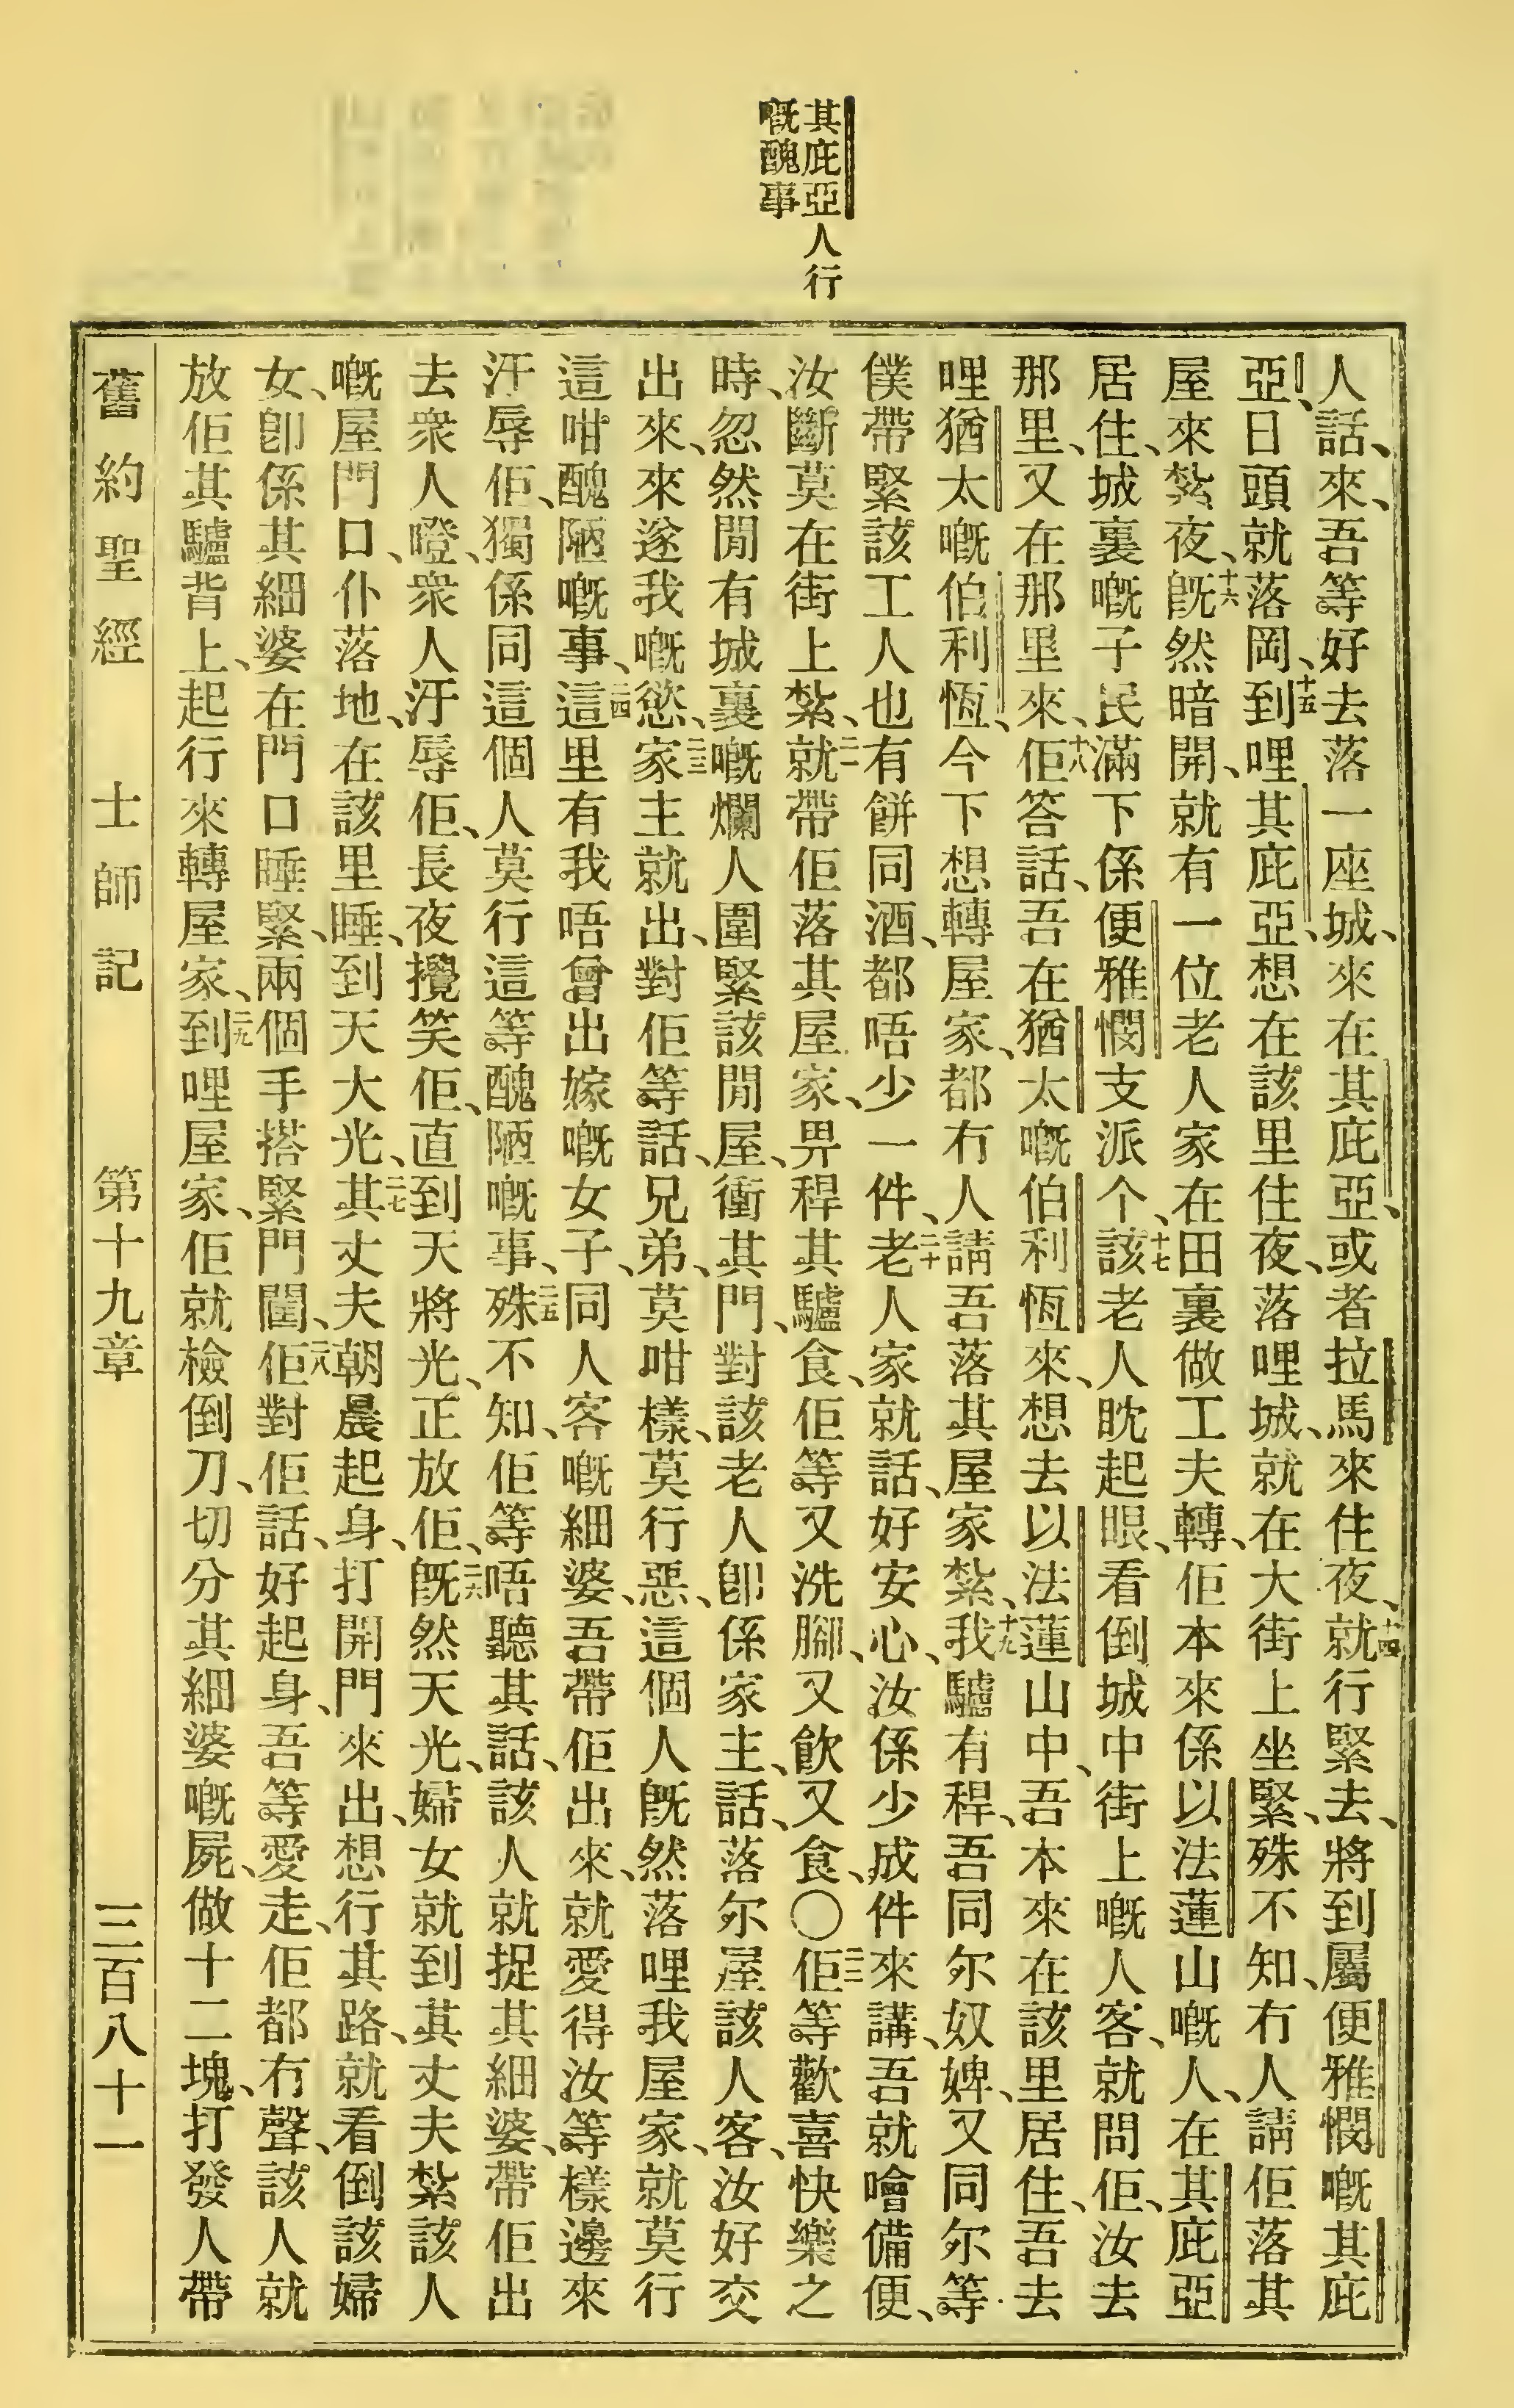 其庇亞人行
嘅醜事
人話、來、吾等好去落一座城、來在其庇亞、或者拉馬來住夜、十四就行緊去、將到屬便雅憫嘅其庇
亞、日頭就落岡、十五到哩其庇亞、想在該里住夜、落哩城、就在大街上坐緊、殊不知、冇人請佢落其
屋來紮夜、十六旣然暗開、就有一位老人家在田裏做工夫轉、佢本來係以法蓮山嘅人、在其庇亞
居住、城裏嘅子民滿下係便雅憫支派个、十七該老人眈起眼、看倒城中街上嘅人客、就問佢、汝去
那里、又在那里來、十八佢答話、吾在猶太嘅伯利恆來、想去以法蓮山中、吾本來在該里居住、吾去
哩猶太嘅伯利恆、今下想轉屋家、都冇人請吾落其屋家紮、十九我驢有稈、吾同尔奴婢、又同尔等
僕帶緊該工人也有餅同酒、都唔少一件、二十老人家就話、好安心、汝係少成件來講、吾就噲備便、
汝斷莫在街上紮、二一就帶佢落其屋家、畀稈其驢食、佢等又洗腳、又飮又食、〇二二佢等歡喜快樂之
時、忽然閒有城裏嘅爛人圍緊該閒屋、衝其門、對該老人卽係家主、話、落尔屋該人客、汝好交
出來、來遂我嘅慾、二三家主就出、對佢等話、兄弟、莫咁樣、莫行惡、這個人旣然落哩我屋家、就莫行
這咁醜陋嘅事、二四這里有我唔曾出嫁嘅女子、同人客嘅細婆、吾帶佢出來、就愛得汝等樣邊來
汙辱佢、獨係同這個人莫行這等醜陋嘅事、二五殊不知、佢等唔聽其話、該人就捉其細婆、帶佢出
去衆人噔、衆人汙辱佢、長夜攪笑佢、直到天將光、正放佢、二六旣然天光、婦女就到其丈夫紮該人
嘅屋門口、仆落地、在該里睡、到天大光、二七其丈夫朝晨起身、打開門來出、想行其路、就看倒該婦
女、卽係其細婆在門口睡緊、兩個手搭緊門闉、二八佢對佢話、好起身、吾等愛走、佢都冇聲、該人就
放佢其驢背上、起行來轉屋家、二九到哩屋家、佢就檢倒刀、切分其細婆嘅屍、做十二塊、打發人帶
舊約聖經　士師記　第十九章　三百八十一